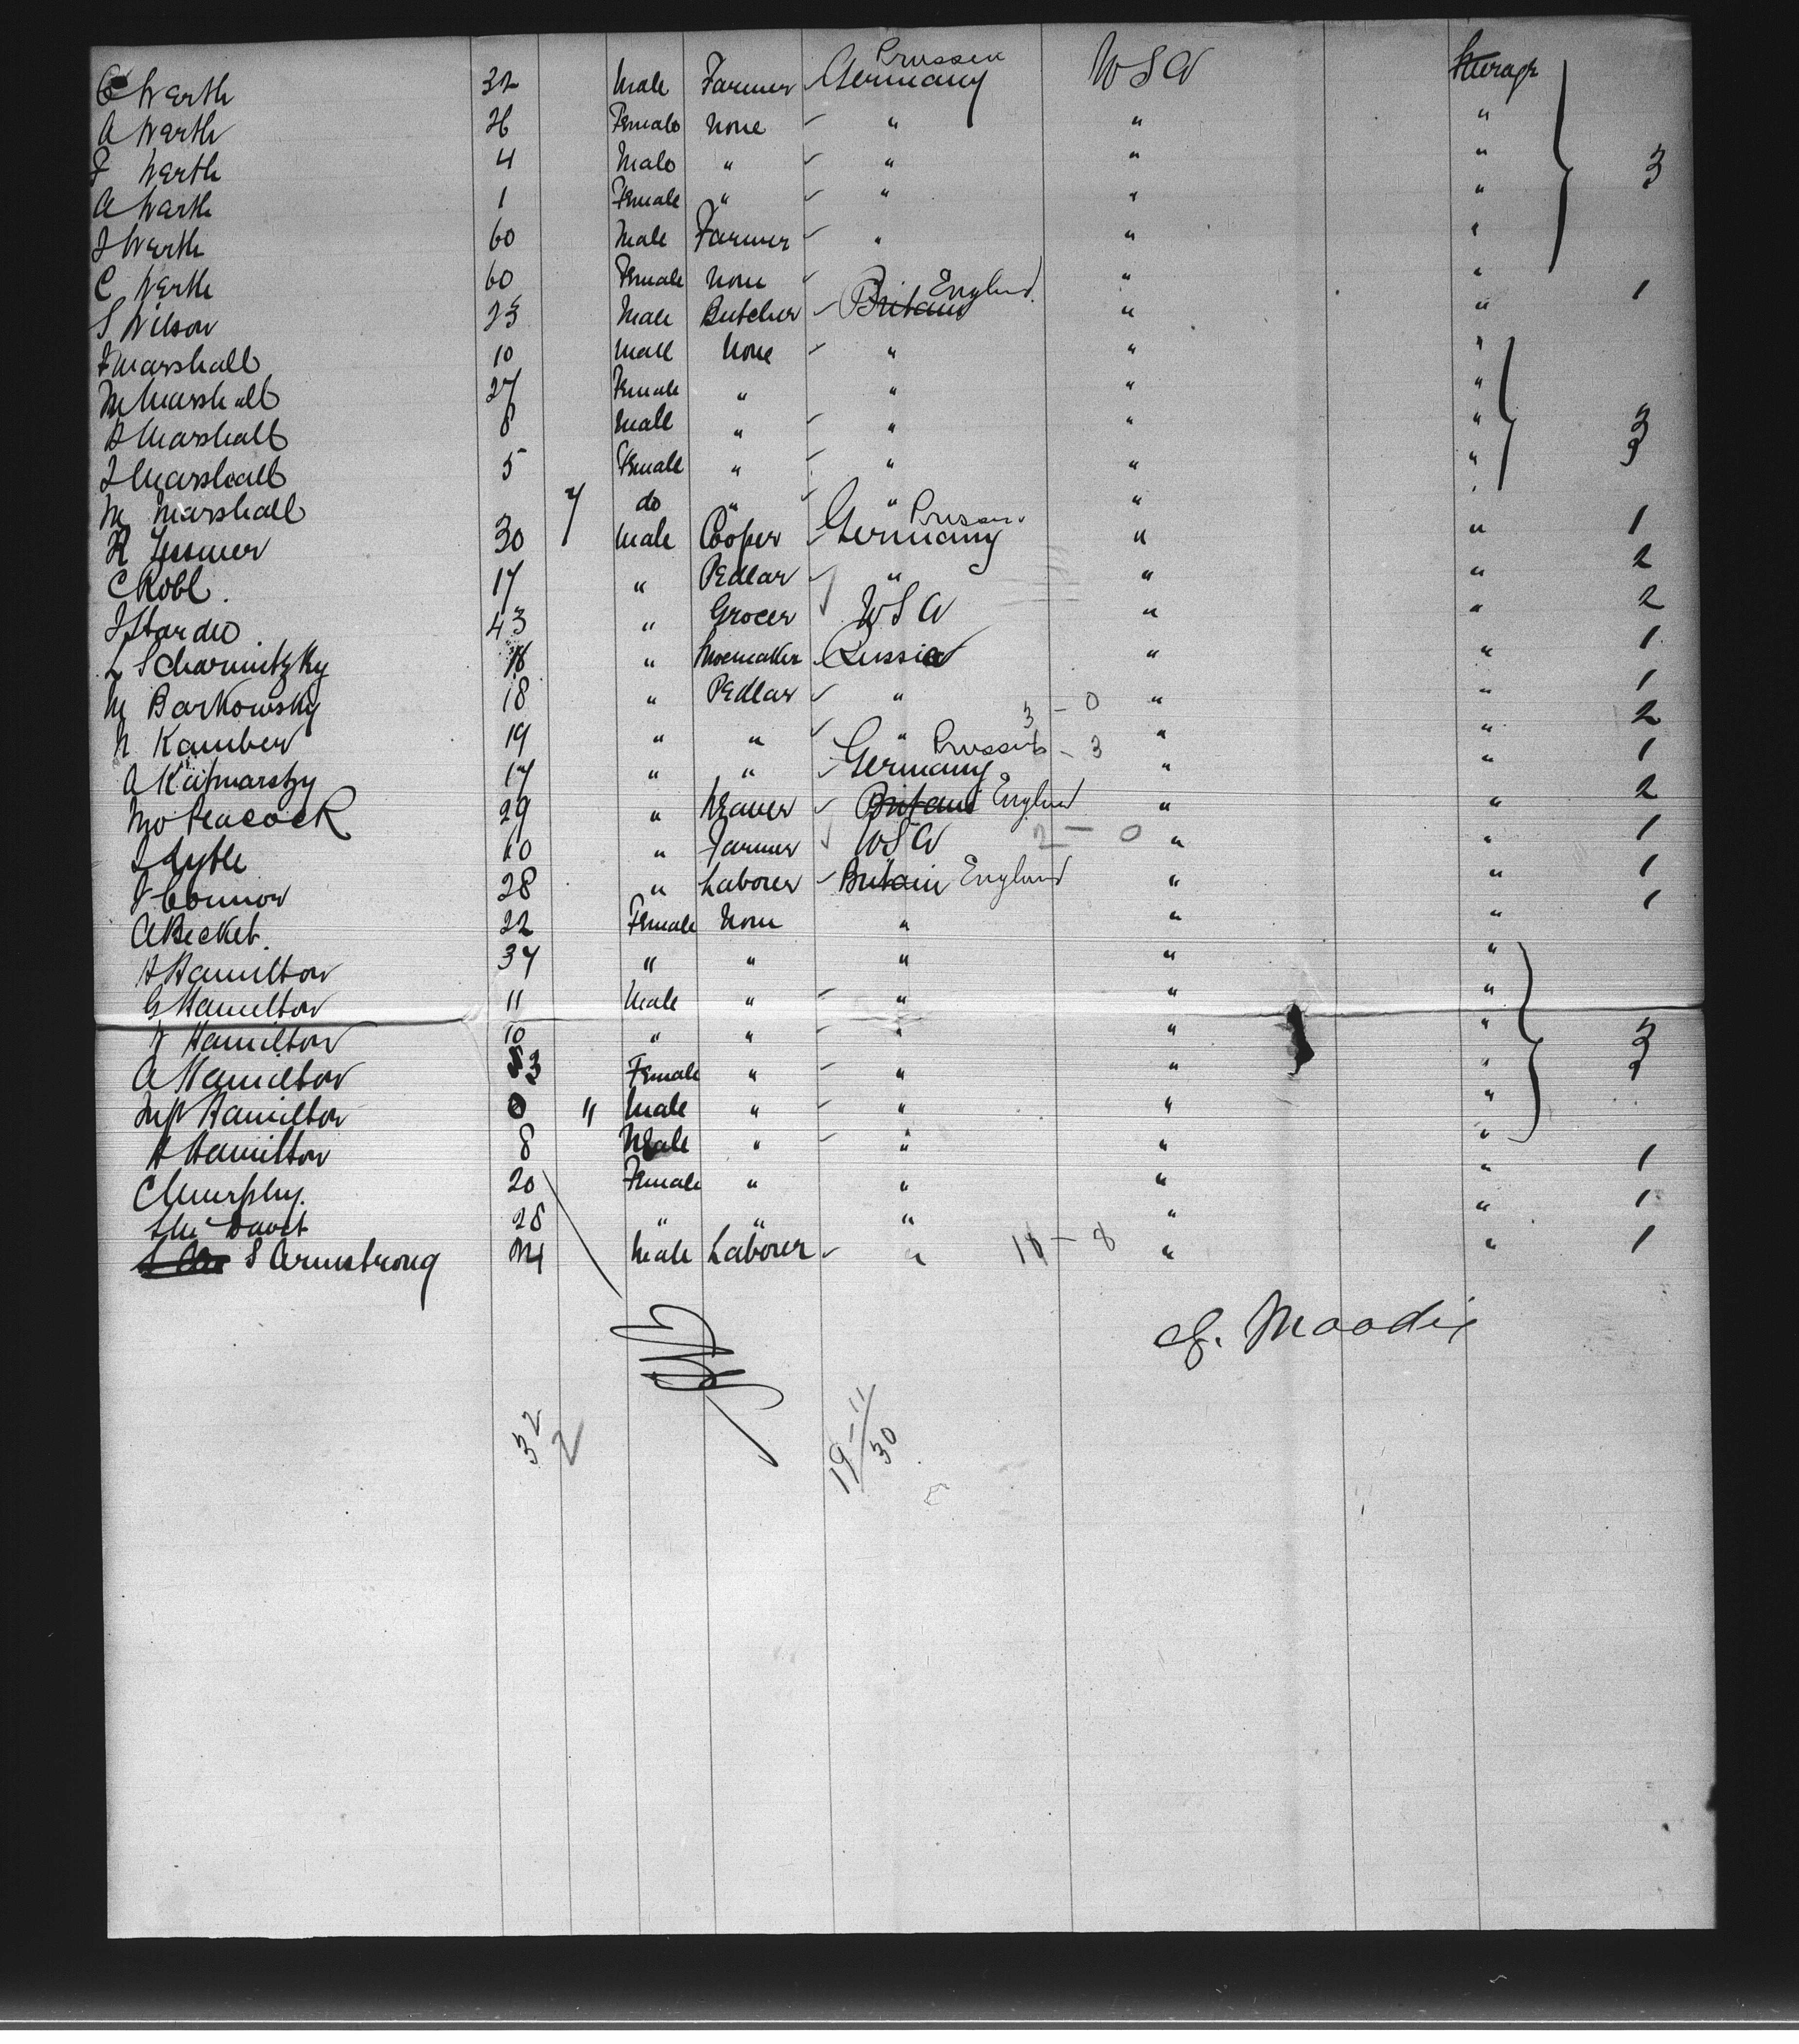 C Werth 32 Male Farmer Germany Prussen U S A Steerage
A Werth 26 Female None " " "
F Werth 4 Male " " " " 3
A Werth 1 Female " " " "
J Werth 60 Male Farmer " " "
C Werth 60 Female None " "
S Wilson 23 Male Butcher Britain England " " 1
J Marshall 10 Male None " " "
M Marshall 27 Female " " " "
A Marshall 8 Male " " " " 3
J Marshall 5 Female " " " " 3
M Marshall 7 do " " "
R Jessmer 30 Male Cooper Germany Prussen " " 1
C Kobl. 17 " Pedlar " " " 2
J Hardie 43 " Grocer U S A " " 2
L Scharnitzky 18 " Shoemaker Russia " " 1
M Barkowsky 18 " Pedlar " 3 - 0 " " 1
N Kamber 19 " " " " " 2
A Katmarszy 17 " " Germany Prussen 6 - 3 " " 1
Peacock 29 " Weaver Britain England " " 2
J Lytle 60 " Farmer U S A 2 - 0 " " 1
J Connor 28 " Labourer Britain England " " 1
A Becket. 22 Female None " " " 1
A Hamilton 34 " " " " "
G Hamilton 11 Male " " " "
J Hamilton 10 " " " " " 3
A Hamilton 3 Female " " " " 3
Inft Hamilton 0 11 Male " " " "
A Hamilton 8 Male " " " "
C Murphy. 20 Female " " " " 1
28 " " " " " 1
S Armstrong 24 Male Labourer " 18 - 8 " " 1
J. Moodie
32
2
19 - 11
30